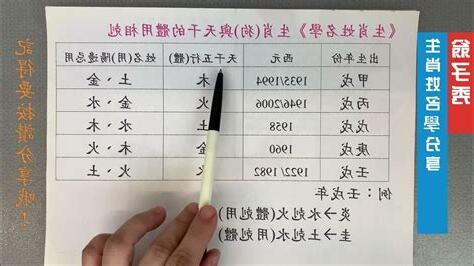 《生肖姓名學》生肖(狗)與天干的體用相剋
出生年份 西元 天干五行(體) 姓名(用)陽邊總用
甲戌 1935/1994 木 土、金
丙戌 1946/2006 火 金、水
戊戌 1958 土 水、木
庚戌 1960 金 木、火
壬戌 1922/1982 水 火、土
例：壬戌年
炎→水剋火(體剋用)
圭→土剋水(用剋體)
翁子秀
生肖姓名學分享
記得要按讚分享哦！